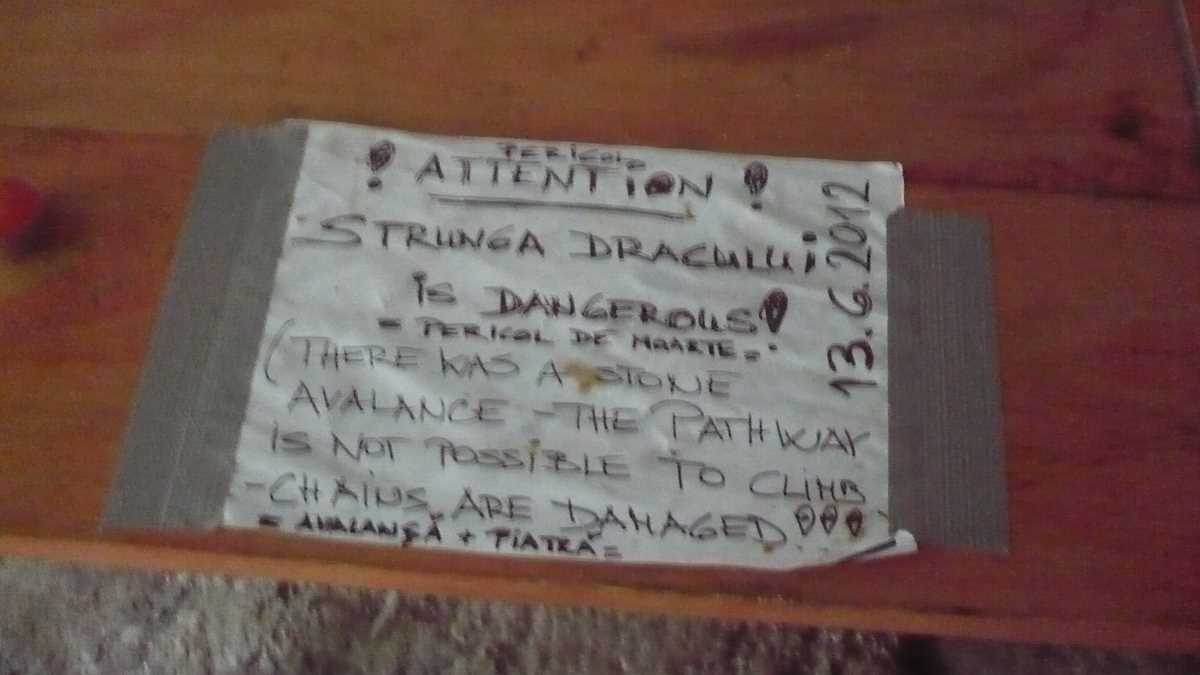 PERICOL
! ATTENTION !
STRUNGA DRACULUI
is DANGEROUS!
= PERICOL DE MOARTE =
(THERE WAS A STONE
AVALANCE - THE PATHWAY
IS NOT POSSIBLE TO CLIMB
- CHAINS ARE DAMAGED!!!
= AVALANȘĂ + PIATRĂ =
13.6.2012